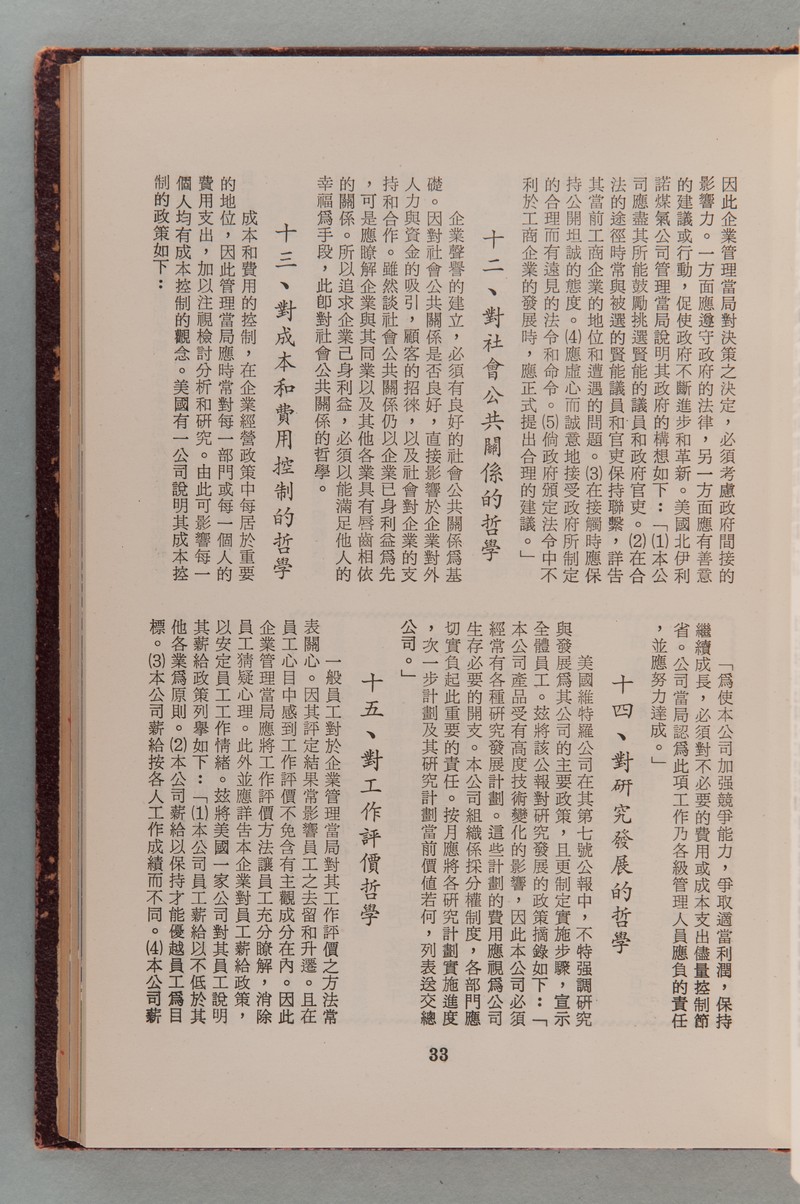 因此企業管理當局對決策之決定，必須考慮政府間接的
影響力。一方面應遵守政府的法律，另一方面應有善意
的建議或行動，促使政府不斷進步和革新。美國北伊利
諾煤氣公司管理當局說明其政府的構想如下：「⑴本公
司應盡其所能鼓勵挑選賢能的議員和政府官吏。⑵在合
法的途徑時常與被選的賢能議員和官吏保持聯繫，詳告
其當前工商企業的地位和遭遇的問題。⑶在接觸時應保
持公開坦誠的態度。⑷應虛心而誠意地接受政府所制定
的合理而有遠見的法令和命令。⑸倘政府頒定法令中不
利於工商企業的發展時，應正式提出合理的建議。」
十二、對社會公共關係的哲學
企業聲譽的建立，必須有良好的社會公共關係爲基
礎。因對社會公共關係是否良好，直接影響於企業對外
人力與資金的吸引，顧客的招徠，以及社會對企業的支
持和合作。雖然談社會公共關係仍以企業已身利益爲先
，可是應瞭解企業與其同業以及其他各業具有唇齒相依
的關係。所以追求企業己身利益，必須以能滿足他人的
幸福爲手段，此卽對社會公共關係的哲學。
十三、對成本和費用控制的哲學
成本和費用的控制，在企業經營政策中每居於重要
的地位，因此管理當局應時常對每一部門或每一個人的
費用支出，加以注視檢討分析和研究。由此可影響每一
個人均有成本控制的觀念。美國有一公司說明其成本控
制的政策如下：
「爲使本公司加强競爭能力，爭取適當利潤，保持
繼續成長，必須對不必要的費用或成本支出儘量控制節
省。公司當局認爲此項工作乃各級管理人員應負的責任
，並應努力達成。」
十四、對研究發展的哲學
美國維特羅公司在其第七號公報中，不特强調研究
與發展爲其公司的主要政策，且更制定實施步驟，宣示
全體員工。玆將該公報對研究發展的政策摘錄如下：「
本公司產品受有高度技術變化的影響，因此本公司必須
經常有各種研究發展計劃。這些計劃的費用應視爲公司
生存必要的開支。本公司組織係採分權制度，各部門應
切實負起此重要的責任。按月應將各研究計劃實施進度
，次一步計劃及其研究計劃當前價値若何，列表送交總
公司。」
十五、對工作評價哲學
一般員工對於企業管理當局對其工作評價之方法常
表關心。因其評定結果常影響員工之去留和升遷。且在
員工心目中感到工作評價不免含有主觀成分在內。因此
企業管理當局應將工作評價方法讓員工充分瞭解，消除
員工猜疑心理。此外並應詳告本企業對員工薪給政策，
以安定員工工作情緒。玆將美國一家公司對其員工說明
其薪給政策列擧如下：「⑴本公司員工薪給以不低於其
他各業爲原則。⑵本公司薪給以保持才能優越員工爲目
標。⑶本公司薪給按各人工作成績而不同。⑷本公司薪
33